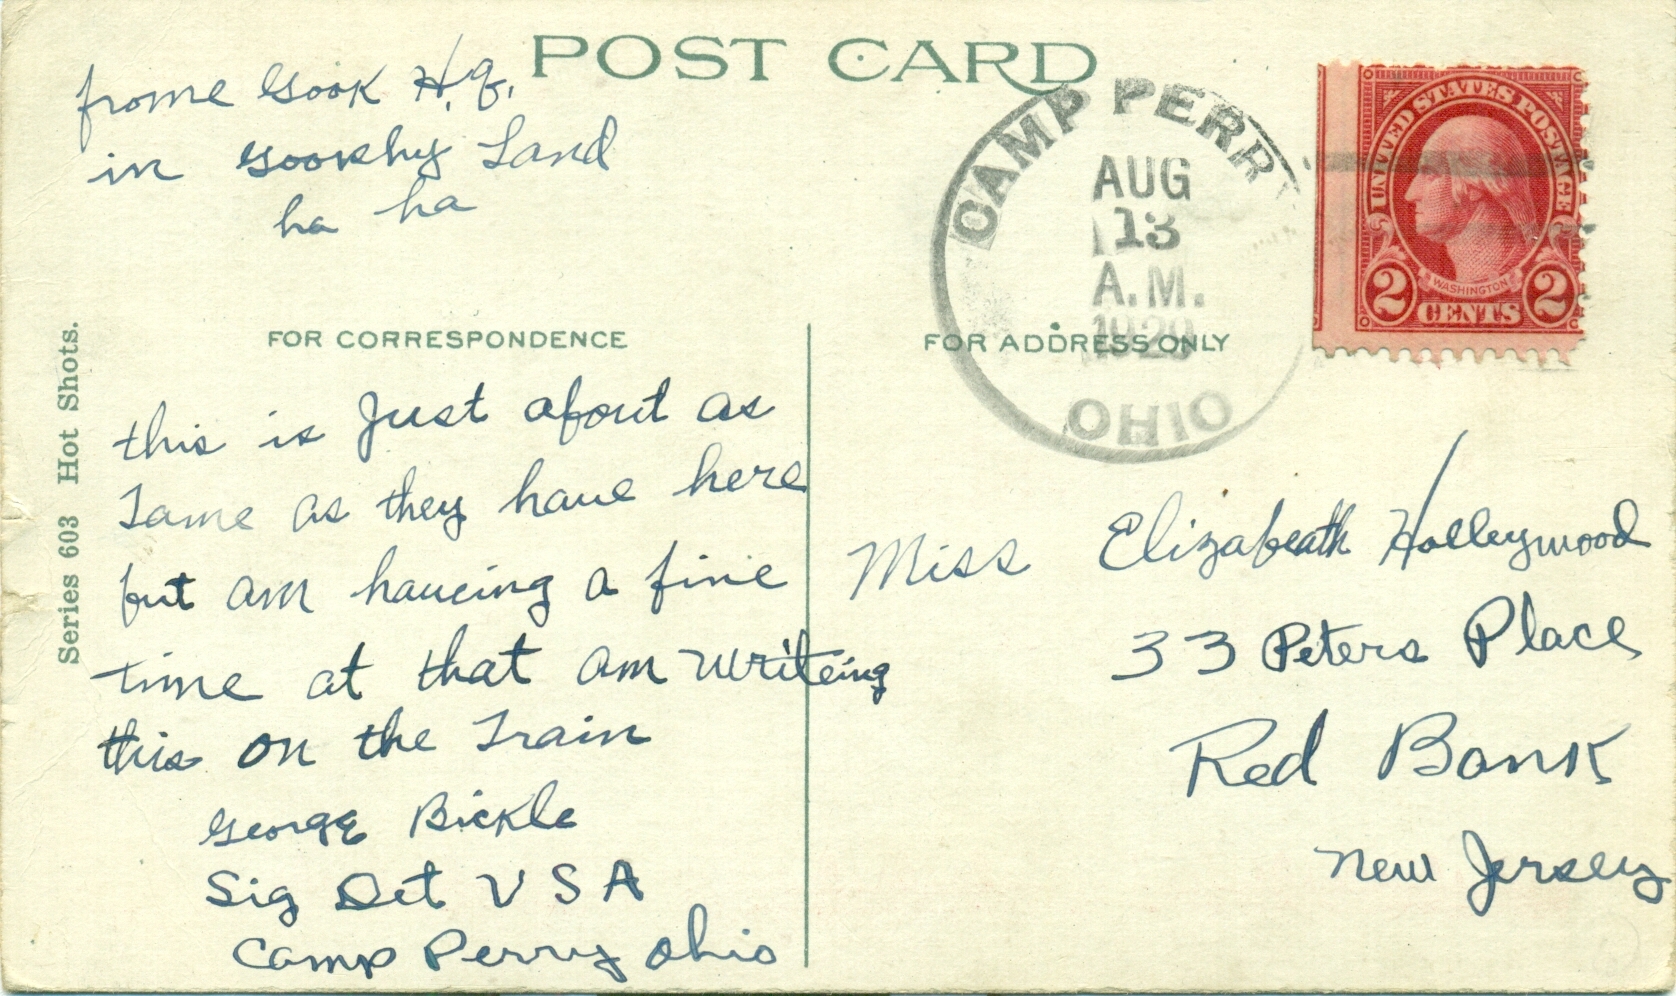 POST CARD
frome Gook H.Q.
in Gookhy Land
ha ha
CAMP PERRY
AUG
13
A.M.
1929
OHIO
UNITED STATES POSTAGE
WASHINGTON
2 CENTS 2
FOR CORRESPONDENCE
FOR ADDRESS ONLY
Series 603 Hot Shots.
this is Just about as
Same as they have here
but am haveing a fine
time at that am Writeing
this on the Train
George Bickle
Sig Det U S A
Camp Perry Ohio
Miss Elizabeath Holleywood
33 Peters Place
Red Bank
New Jersey